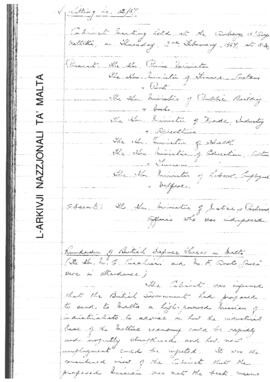 Sitting No. 12/67.
Cabinet Meeting held at the Auberge
Valletta, on Thursday, 2nd February, 1967, at
Present: The Hon. Prime Minister
The Hon. Minister of Finance, Customs
& Port
The Hon. Minister of Public Building
& Works
The Hon. Minister of Trade, Industry
& Agriculture
The Hon. Minister of Health
The Hon. Minister of Education, Culture
& Tourism
The Hon. Minister of Labour, Employment
& Welfare.
Absent: The Hon. Minister of Justice &
Affairs who was indisposed
Rundown of British Defence Forces in Malta
(The Hon. Mr. and Mr.
were in attendance)
The Cabinet was informed
that the British Government had proposed
to send to Malta a high-powered mission of
industrialists to advise on how the industrial
base of the Maltese economy could be rapidly
and broadly strengthened and how new
employment could be injected. It was the
considered view of the Cabinet that the
proposed mission was not the best means
L-ARKIVJI NAZZJONALI TA' MALTA